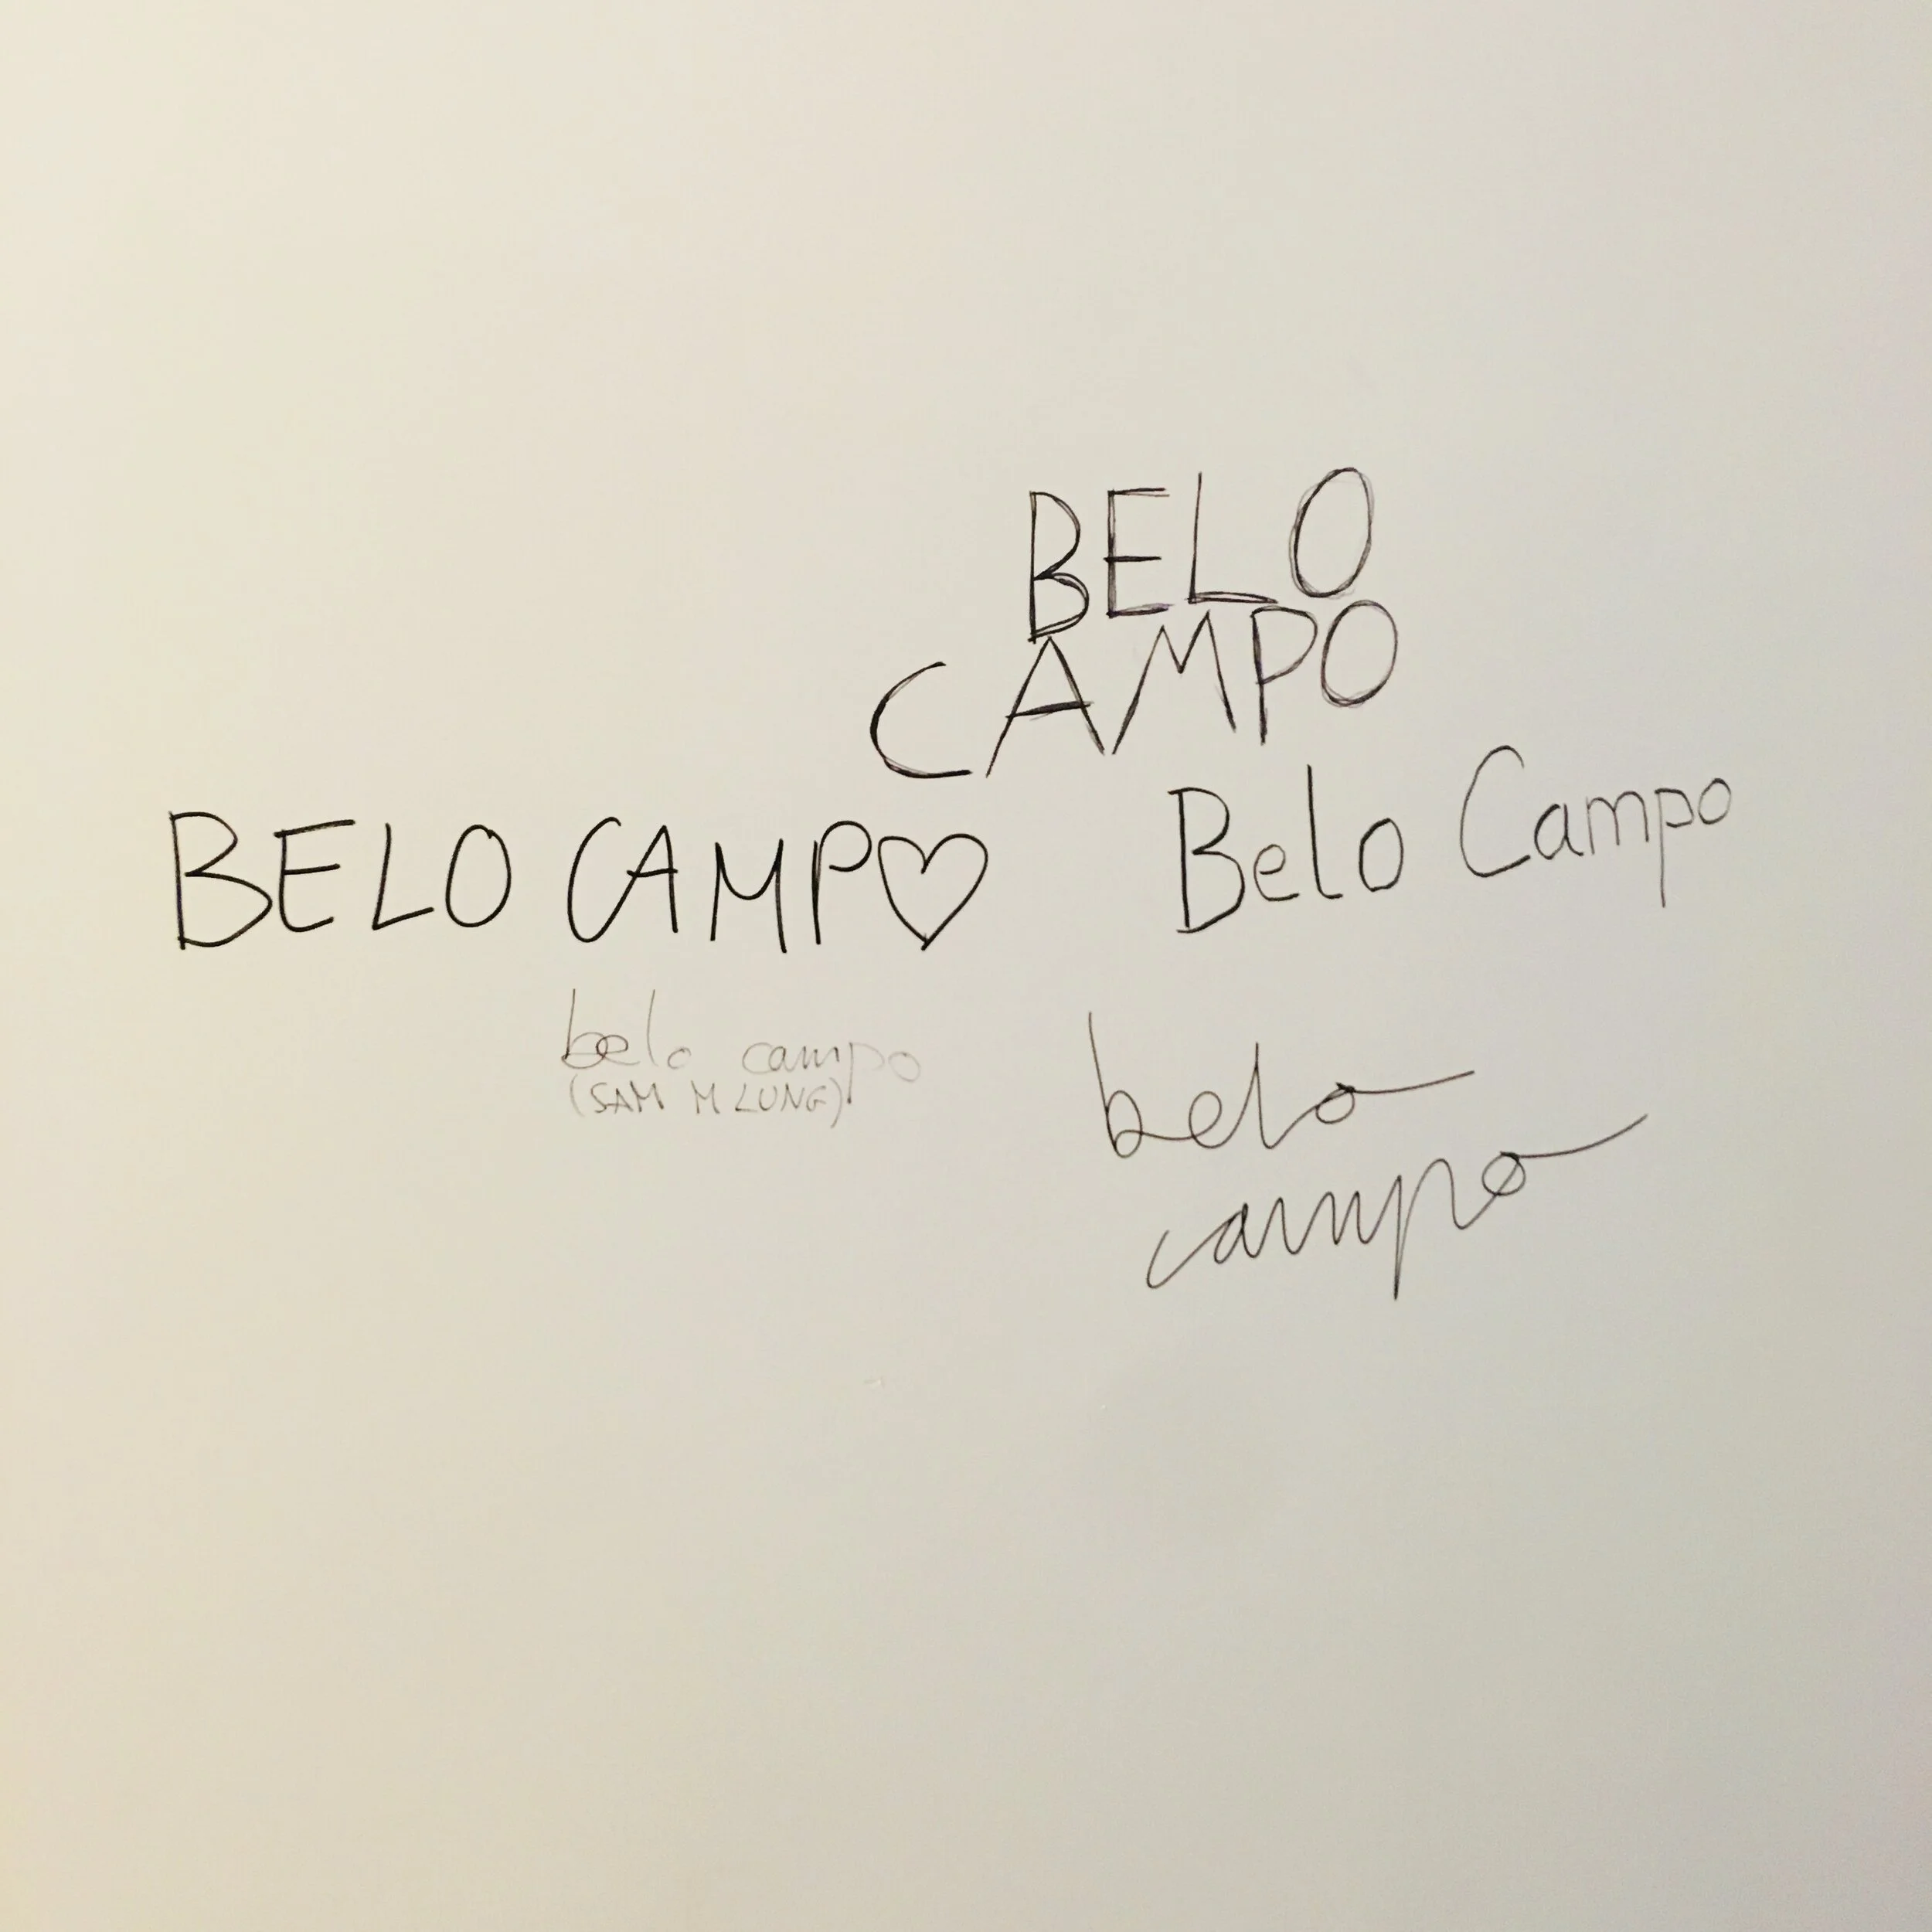 BELO
CAMPO
BELO CAMP♡
Belo Campo
belo campo
(SAM M LUNG)
belo
campo